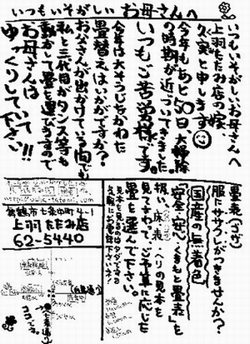 いつもいそがしいお母さんへ
いつもいそがしいお母さんへ
上羽たたみ店の嫁
久実と申します
今年もあと50日 大掃除
の時期が近づいてきました
いつもご苦労様です。
今年は大そうじのかわりに
畳替えはいかがですか?
お父さんが出かけている間でも
私と三代目がタンス等も
動かして畳を運びますので
お母さんは
ゆっくりしていて
下さい!!
畳表（ゴザ）
服にササクレがつきませんか?
国産の無着色
安全・安心・くまもと畳表を
扱い、床、表、へりの見本を
見てもらい、ご予算に応じた
畳を選んで下さい。
舞鶴市七条中町4-1
上羽たたみ店
62-5440